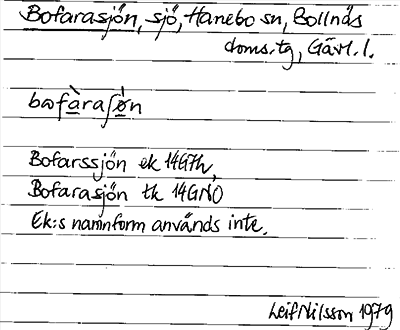 Bofarasjön, sjö, Hanebo sn, Bollnäs
doms.tg, Gävl. l.
bωfàraʃø̀n
Bofarssjön ek 14G7h,
Bofarasjön tk 14GNO
Ek:s namnform används inte.
Leif Nilsson 1979